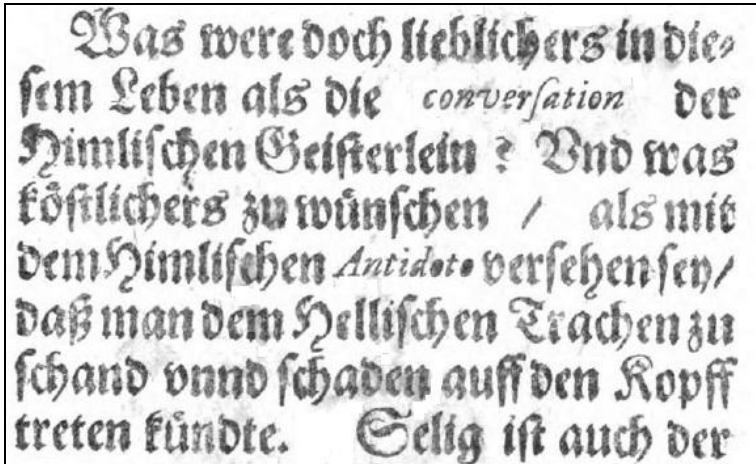 Was were doch lieblichers in die⸗
ſem Leben als die converſation der
Himliſchen Geiſterlein? Vnd was
köſtlichers zu wünſchen / als mit
dem Himliſchen Antidoto verſehen ſey /
daß man dem Helliſchen Trachen zu
ſchand vnnd ſchaden auff den Kopff
treten kündte. Selig iſt auch der